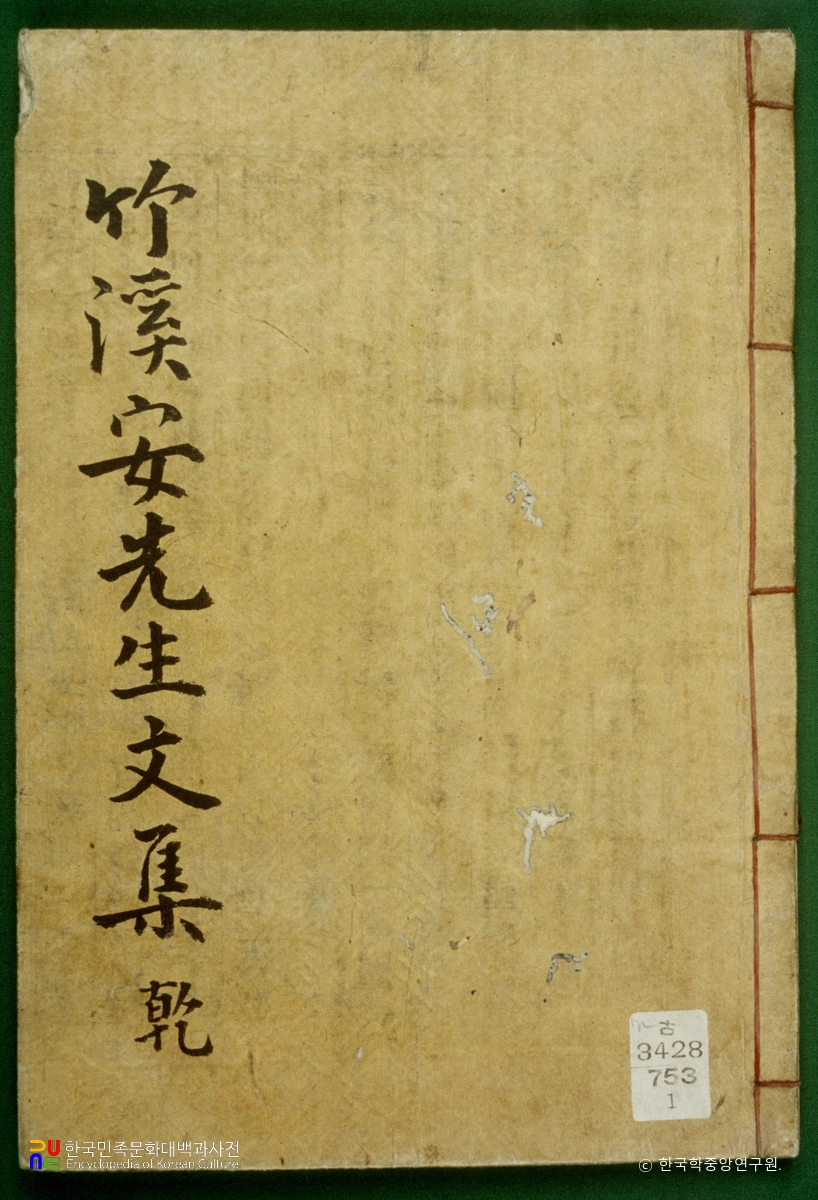 竹溪安先生文集 乾
古
3428
753
1
한국민족문화대백과사전
Encyclopedia of Korean Culture
© 한국학중앙연구원.